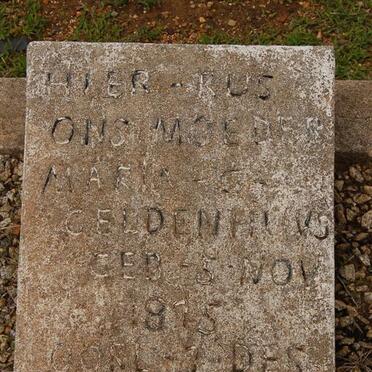 HIER - RUS
ONS MOEDER
MARIA - G -
GELDENHUYS
GEB - 5 - NOV
1875
DES